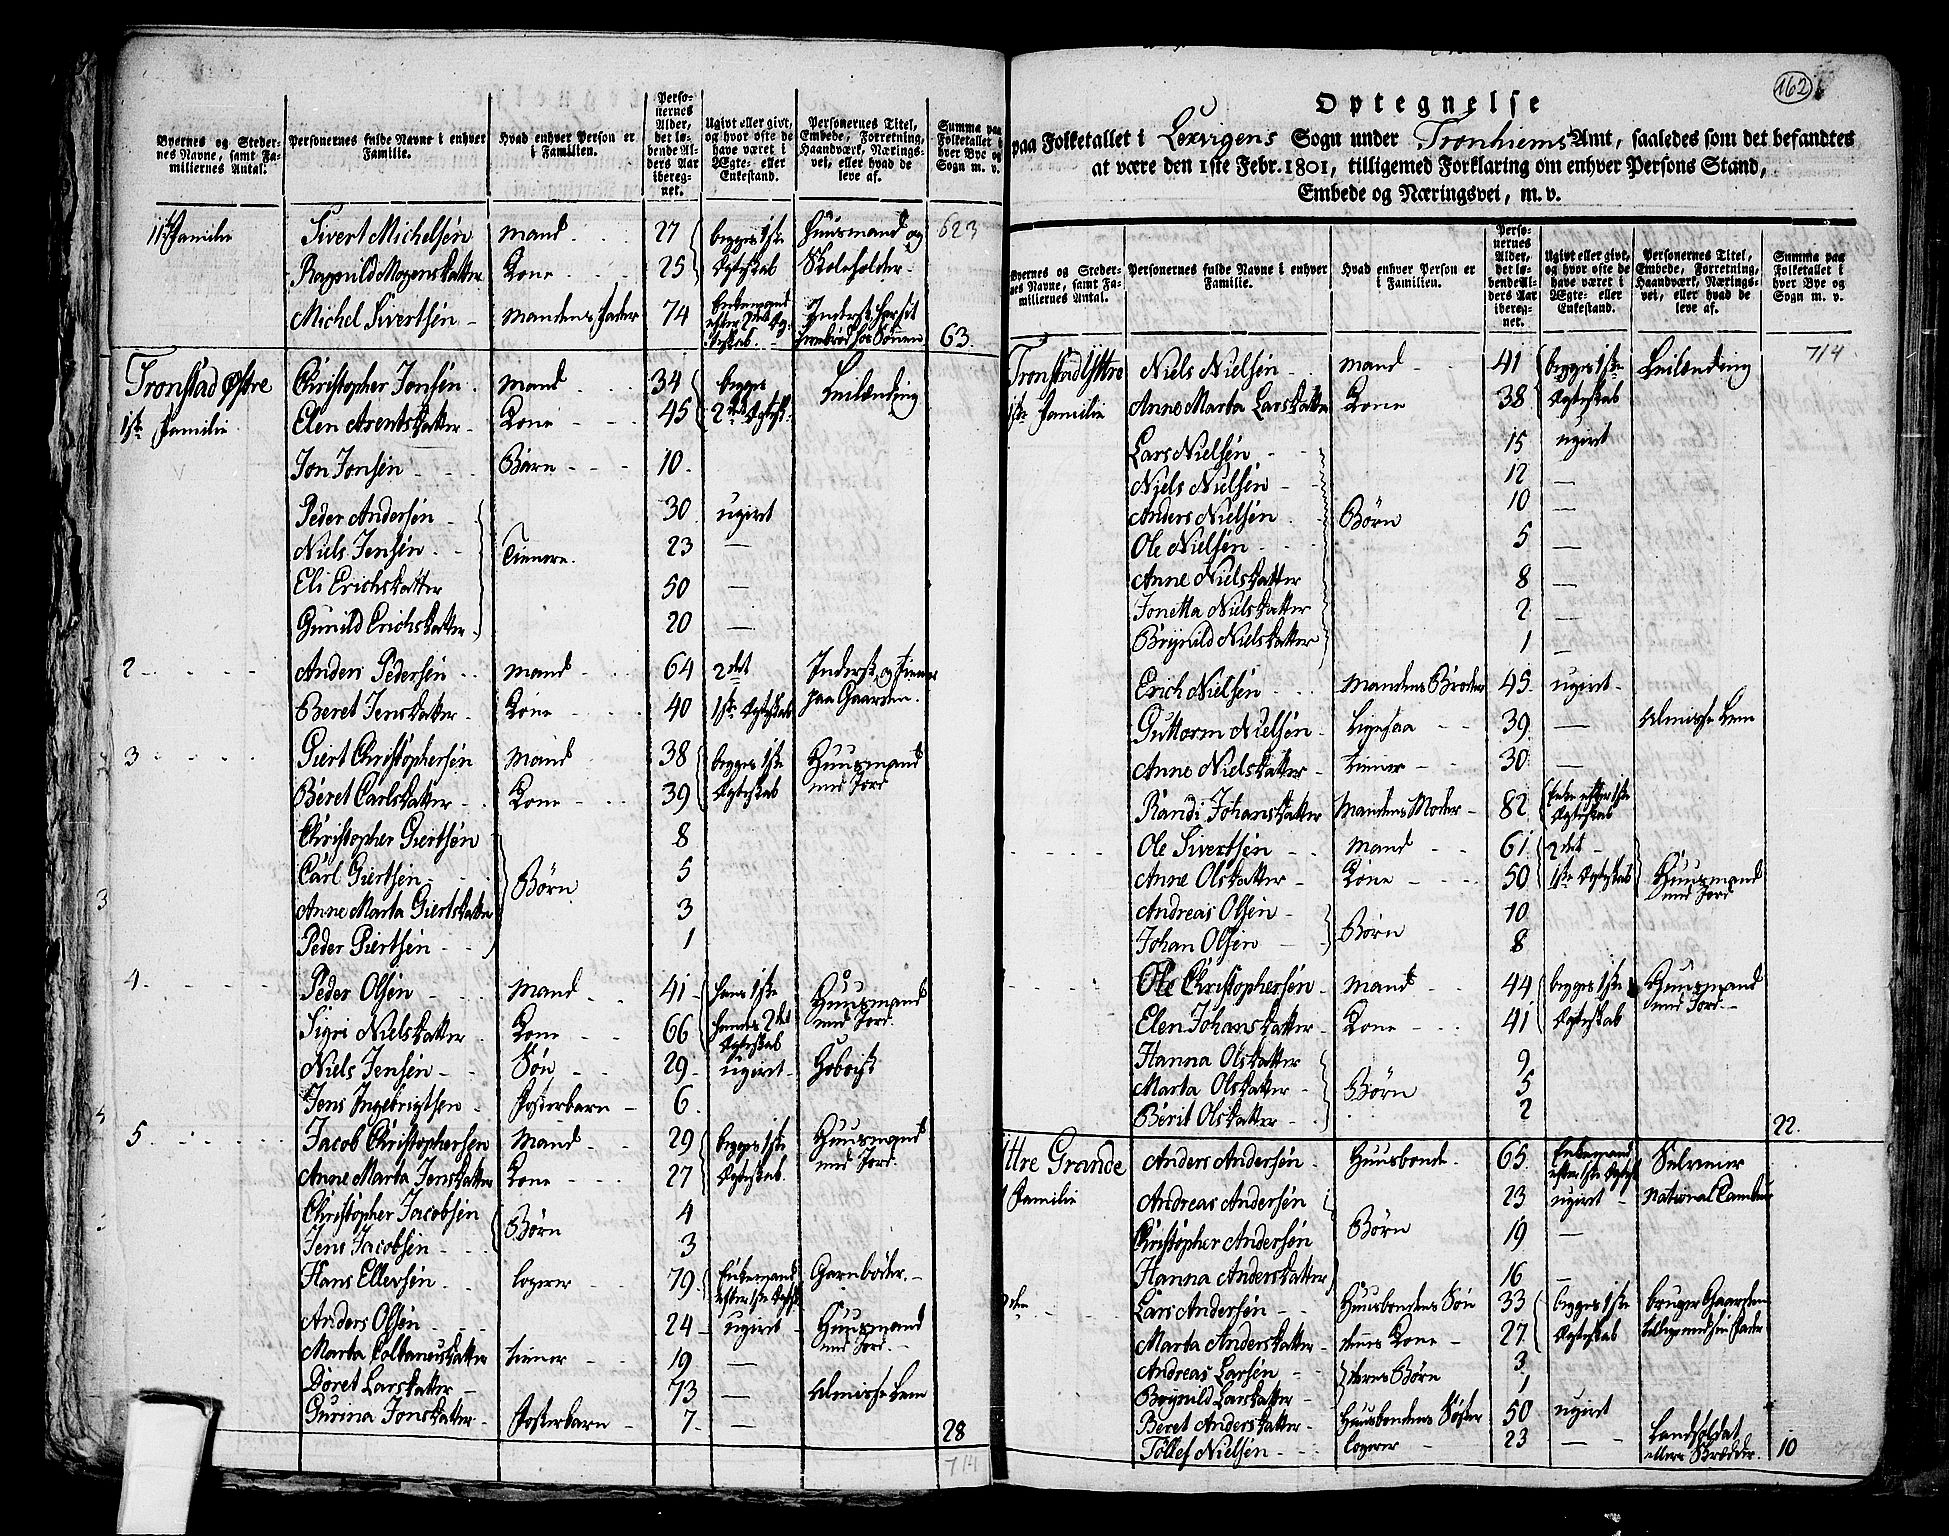 Byernes og Steder-
nes Navne, samt Fa-
miliernes Antal.
Personernes fulde Navne i enhver
Familie.
Hvad enhver Person er
i Familien.
Perso-
nernes
Alder,
det lø-
bende Al-
ders Aar
ibereg-
net.
Ugivt eller givt,
og hvor ofte de
have været i
Ægte- eller
Enkestand.
Personernes Titel,
Embede, Forretning,
Haandværk, Nærings-
vei, eller hvad de
leve af.
Summa paa
Folketallet i
hver Bye og
Sogn m. v.
11te Familie Sivert Michelsen Mand 27 begges 1ste Huusmand og 623
Ragnild Mogensdatter Kone 25 Ægteskab Skoleholder
Michel Sivertsen Mandens Fader 74 Enkemand
efter 2det Æg-
teskab. 63
Tronstad Østre Christopher Jonsen Mand 34 begges Leilænding
1ste Familie Elen Arentsdatter Kone 45 2det Ægtesk:
Jon Jonsen Barn 10
Peder Andersen 30 ugivt
Niels Jensen Tienere. 23 —
Eli Erichsdatter 50 —
Gunild Erichsdatter 20 —
2 Anders Pedersen Mand 64 2det Inderst og tiener
Beret Jensdatter Kone 40 1ste Ægteskab paa Gaarden.
3 Giert Christophersen Mand 38 begges 1ste Huusmand
Beret Carlsdatter Kone 39 Ægteskab med Jord
Christopher Giertsen 8
Carl Giertsen Børn 5
Anne Marta Giertsdatter 3
Peder Giertsen 1
4 Peder Olsen Mand 41 hans 1ste Huusmand
Sigri Nielsdatter Kone 66 hendes 2det med Jord.
Ægteskab
Niels Jensen Søn 29 ugivt Hoboist
Jens Ingebrigtsen Fosterbarn 6
5 Jacob Christophersen Mand 29 begges 1ste Huusmand
Anne Marta Jensdatter Kone 27 Ægteskab. med Jord.
Christopher Jacobsen Børn 4
Jens Jacobsen 3
Hans Ellevsen logerer 79 Enkemand Garnbøder.
efter 1ste Ægtesk
Anders Olsen 24 ugivt Huusmand
med Jord.
Marta datter tiener 19 —
Døret Larsdatter 73 — Almisse Lem
Gurina Jonsdatter Fosterbarn 7 — 28
714
162
Optegnelse
paa Folketallet i Lexvigens Sogn under Tronhiems Amt, saaledes som det befandtes
at være den 1ste Febr. 1801, tilligemed Forklaring om enhver Persons Stand,
Embede og Næringsvei, m. v.
Byernes og Steder-
nes Navne, samt Fa-
miliernes Antal.
Personernes fulde Navne i enhver
Familie.
Hvad enhver Person er
i Familien.
Perso-
nernes
Alder,
det lø-
bende Al-
ders Aar
ibereg-
net.
Ugivt eller givt,
og hvor ofte de
have været i
Ægte- eller
Enkestand.
Personernes Titel,
Embede, Forretning,
Haandværk, Nærings-
vei, eller hvad de
leve af.
Summa paa
Folketallet i
hver Bye og
Sogn m. v.
Tronstad Yttre Niels Nielsen Mand 41 begges 1ste Leilænding 714
1ste Familie Anne Marta Larsdatter Kone 38 Ægteskab
Lars Nielsen 15 ugivt
Niels Nielsen 12 —
Anders Nielsen Børn 10 —
Ole Nielsen 5 —
Anne Nielsdatter 8 —
Jonetta Nielsdatter 2 —
Brynild Nielsdatter 1 —
Erich Nielsen Mandens Broder 45 ugivt
Guttorm Nielsen ligesaa 39 — Almisse Lem
Anne Nielsdatter tiener 30 —
Randi Johansdatter Mandens Moder 82 Enke efter 1ste
Ægteskab
Ole Sivertsen Mand 61 2det
Anne Olsdatter Kone 50 1ste Ægteskab Huusmand
med Jord
Andreas Olsen Børn 10
Johan Olsen 8
Ole Christophersen Mand 44 begges 1ste Huusmand
Elen Johansdatter Kone 41 Ægteskab med Jord.
Hanna Olsdatter 9
Marta Olsdatter Børn 5
Berit Olsdatter 2 22.
Yttre Grande Anders Andersen Huusbonde 65 Enkemand Selveier
efter 1ste Ægtesk
1 Familie Andreas Andersen 23 ugivt National
Christopher Andersen Børn 19 —
Hanna Andersdatter 16 —
Lars Andersen Huusbondens Søn 33 begges 1ste bruger Gaarden
Marta Andersdatter hans Kone 27 Ægteskab tilligemed sin Fader
Andreas Larsen deres Børn 3
Brynild Larsdatter 1
Beret Andersdatter Huusbondens Søster 50 ugivt
Tollef Nielsen logerer 23 — Landsoldat
ellers Skrædder. 10